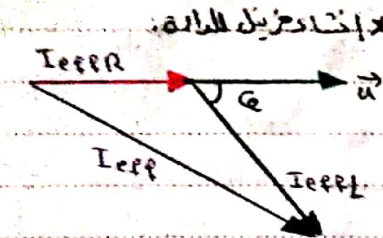 إنشاء فرينل للدارة:
IeffR
φ
u
Ieff
IeffL